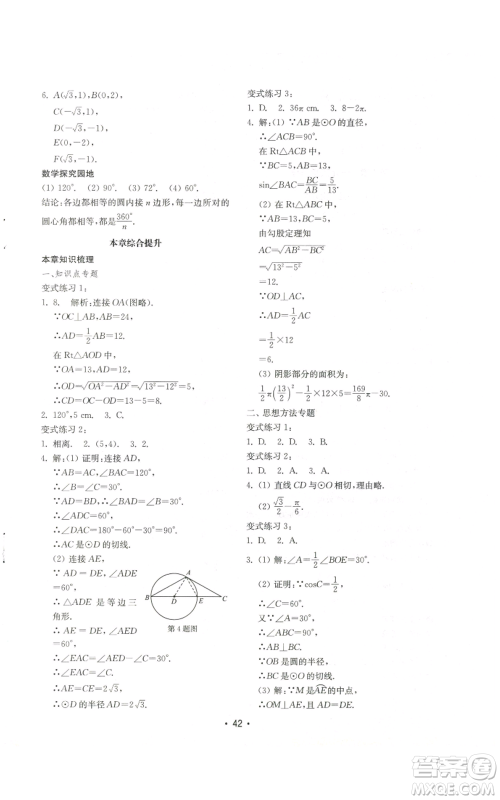 6. A(√3,1),B(0,2),
C(−√3,1),
D(−√3,−1),
E(0,−2),
F(√3,−1).
数学探究园地
(1) 120° (2) 90° (3) 72° (4) 60°.
结论:各边都相等的圆内接 n 边形,每一边所对的
圆心角都相等,都等于360°/n.
本章综合提升
本章知识梳理
一、知识点专题
变式练习 1:
1. 8. 解析:连接 OA(图略).
∵OC⊥AB,AB=24,
∴AD=1/2AB=12.
在 Rt△AOD 中,
∵OA=13,AD=12,
∴OD=√(OA²−AD²)=√(13²−12²)=5.
∴CD=OC−OD=13−5=8.
2. 120°,5 cm. 3. C.
变式练习 2:
1. 相离. 2. (5,4). 3. 2.
4. 解:(1) 证明:连接 AD.
∵AB=AC,∠BAC=120°,
∴∠B=∠C=30°.
∵AD=BD,∴∠BAD=∠B=30°.
∴∠ADC=60°.
∴∠DAC=180°−60°−30°=90°.
∴AC 是⊙D 的切线.
(2) 连接 AE,
∵AD=DE,∠ADE
=60°,
∴△ADE 是等边三
角形.
∴AE=DE,∠AED
=60°.
∴∠EAC=∠AED−∠C=30°.
∴∠EAC=∠C.
∴AE=CE=2√3.
∴⊙D 的半径 AD=2√3.
A
B
D
E
C
第 4 题图
变式练习 3:
1. D. 2. 36π cm. 3. 8−2π.
4. 解:(1) ∵AB 是⊙O 的直径,
∴∠ACB=90°.
在 Rt△ACB 中,
∵BC=5,AB=13,
sin∠BAC=BC/AB=5/13.
(2) 在 Rt△ABC 中,
由勾股定理
AC=√(AB²−BC²)
=√(13²−5²)
=12.
∵OD⊥AC,
∴AD=1/2AC
=1/2×12
=6.
(3) 阴影部分的面积为:
1/2π(13/2)²−1/2×12×5=169/8π−30.
二、思想方法专题
变式练习 1:
1. D. 2. D. 3. A.
变式练习 2:
1. D. 2. A. 3. A.
4. (1) 直线 CD 与⊙O 相切,理由略.
(2) √3/2−π/6.
变式练习 3:
1. D. 2. D.
3. (1) 解:∠A=1/2∠BOE=30°.
(2) 证明:∵cosC=1/2,
∴∠C=60°.
∴∠ABC=90°.
∴AB⊥BC.
∵OB 是圆的半径,
∴BC 是⊙O 的切线.
(3) 解:∵M 是AE的中点,
∴OM⊥AE.
42
作业帮
MXEQ.COM